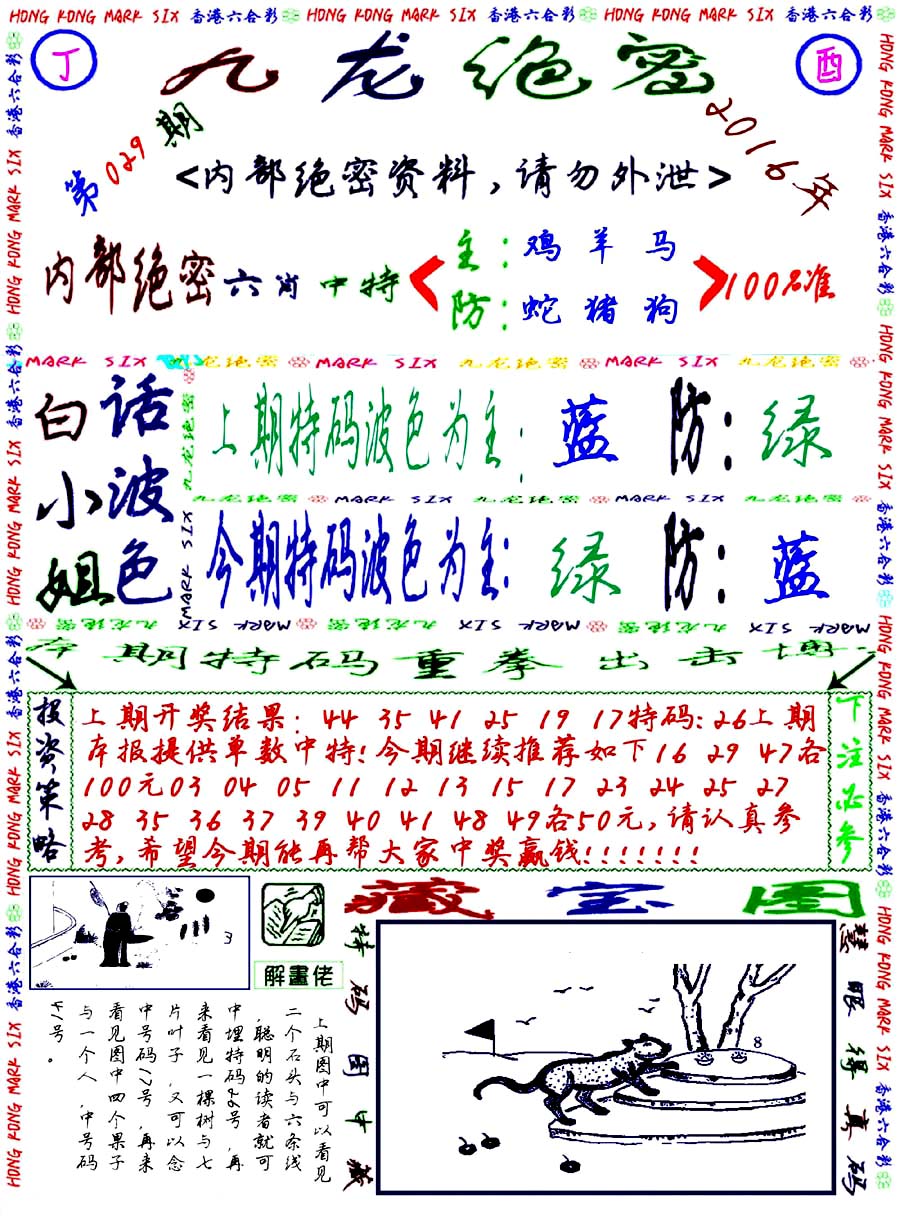 HONG KONG MARK SIX 香港六合彩 HONG KONG MARK SIX 香港六合彩 HONG KONG MARK SIX 香港六合彩
丁
九龙绝密
酉
第029期
2016年
<内部绝密资料,请勿外泄>
内部绝密六肖中特
主:鸡羊马
防:蛇猪狗
100%准
MARK SIX 九龙绝密 MARK SIX 九龙绝密 MARK SIX 九龙绝密
白话
小波
姐色
上期特码波色为主:蓝 防:绿
九龙绝密 MARK SIX 九龙绝密 MARK SIX 九龙绝密
今期特码波色为主:绿 防:蓝
本期特码重拳出击博
投资策略
上期开奖结果: 44 35 41 25 19 17特码:26上期
本报提供单数中特!今期继续推荐如下16 29 47各
100元03 04 05 11 12 13 15 17 23 24 25 27
28 35 36 37 39 40 41 48 49各50元,请认真参
考,希望今期能再帮大家中奖赢钱!!!!!!!
下注必参
藏宝图
解畫佬
上期图中可以看见
二个石头与六条线
,聪明的读者就可
中埋特码26号,再
来看见一棵树与七
片叶子,又可以念
中号码17号,再来
看见图中四个果子
与一个人,中号码
41号。
特码图中藏
8
慧眼得真码